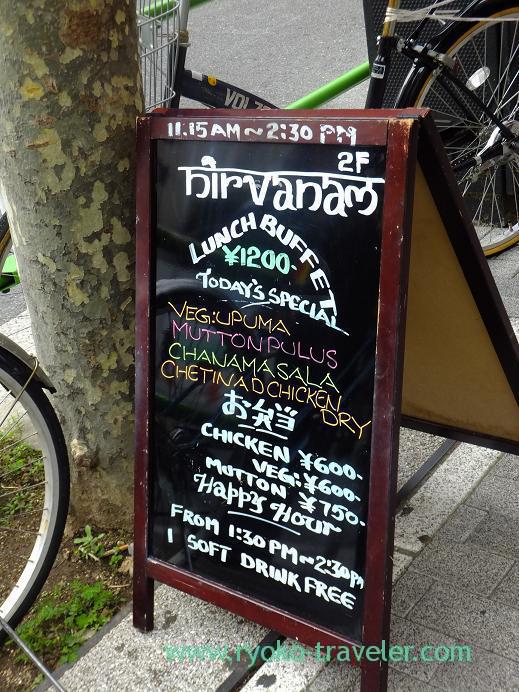 VOL
11.15 AM ~ 2:30 PM
2F
nirvanam
LUNCH BUFFET
¥1200-
TODAY'S SPECIAL
VEG: UPUMA
MUTTON PULUS
CHANAMASALA
CHETINAD CHICKEN
DRY
お弁当
CHICKEN ¥600-
VEG: ¥600-
MUTTON ¥750-
Happy Hour
FROM 1:30 PM ~ 2:30 PM
1 SOFT DRINK FREE
www.ryoko-traveler.com